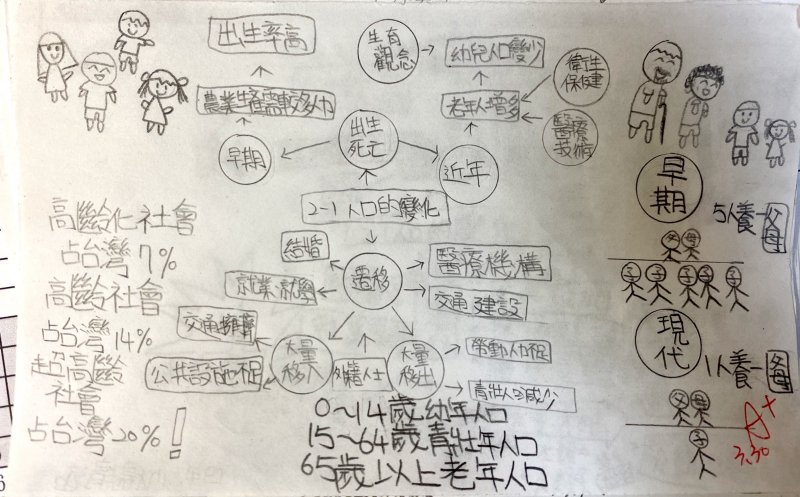 出生率高
農業生產需較多人力
早期
出生
死亡
近年
生育
觀念
幼兒人口變少
老年人增多
衛生
保健
醫療
技術
2-1人口的變化
遷移
結婚
就業 就學
醫療機構
交通建設
大量
移入
交通擁擠
公共設施不足
外籍人士
大量
移出
勞動力不足
青壯人口減少
高齡化社會
占台灣7%
高齡社會
占台灣14%
超高齡
社會
占台灣20%!
0~14歲幼年人口
15~64歲青壯年人口
65歲以上老年人口
早
期
5人養一父母
父 母
子 子 子 子 子
現
代
1人養一父母
父 母
子
A+
3.30